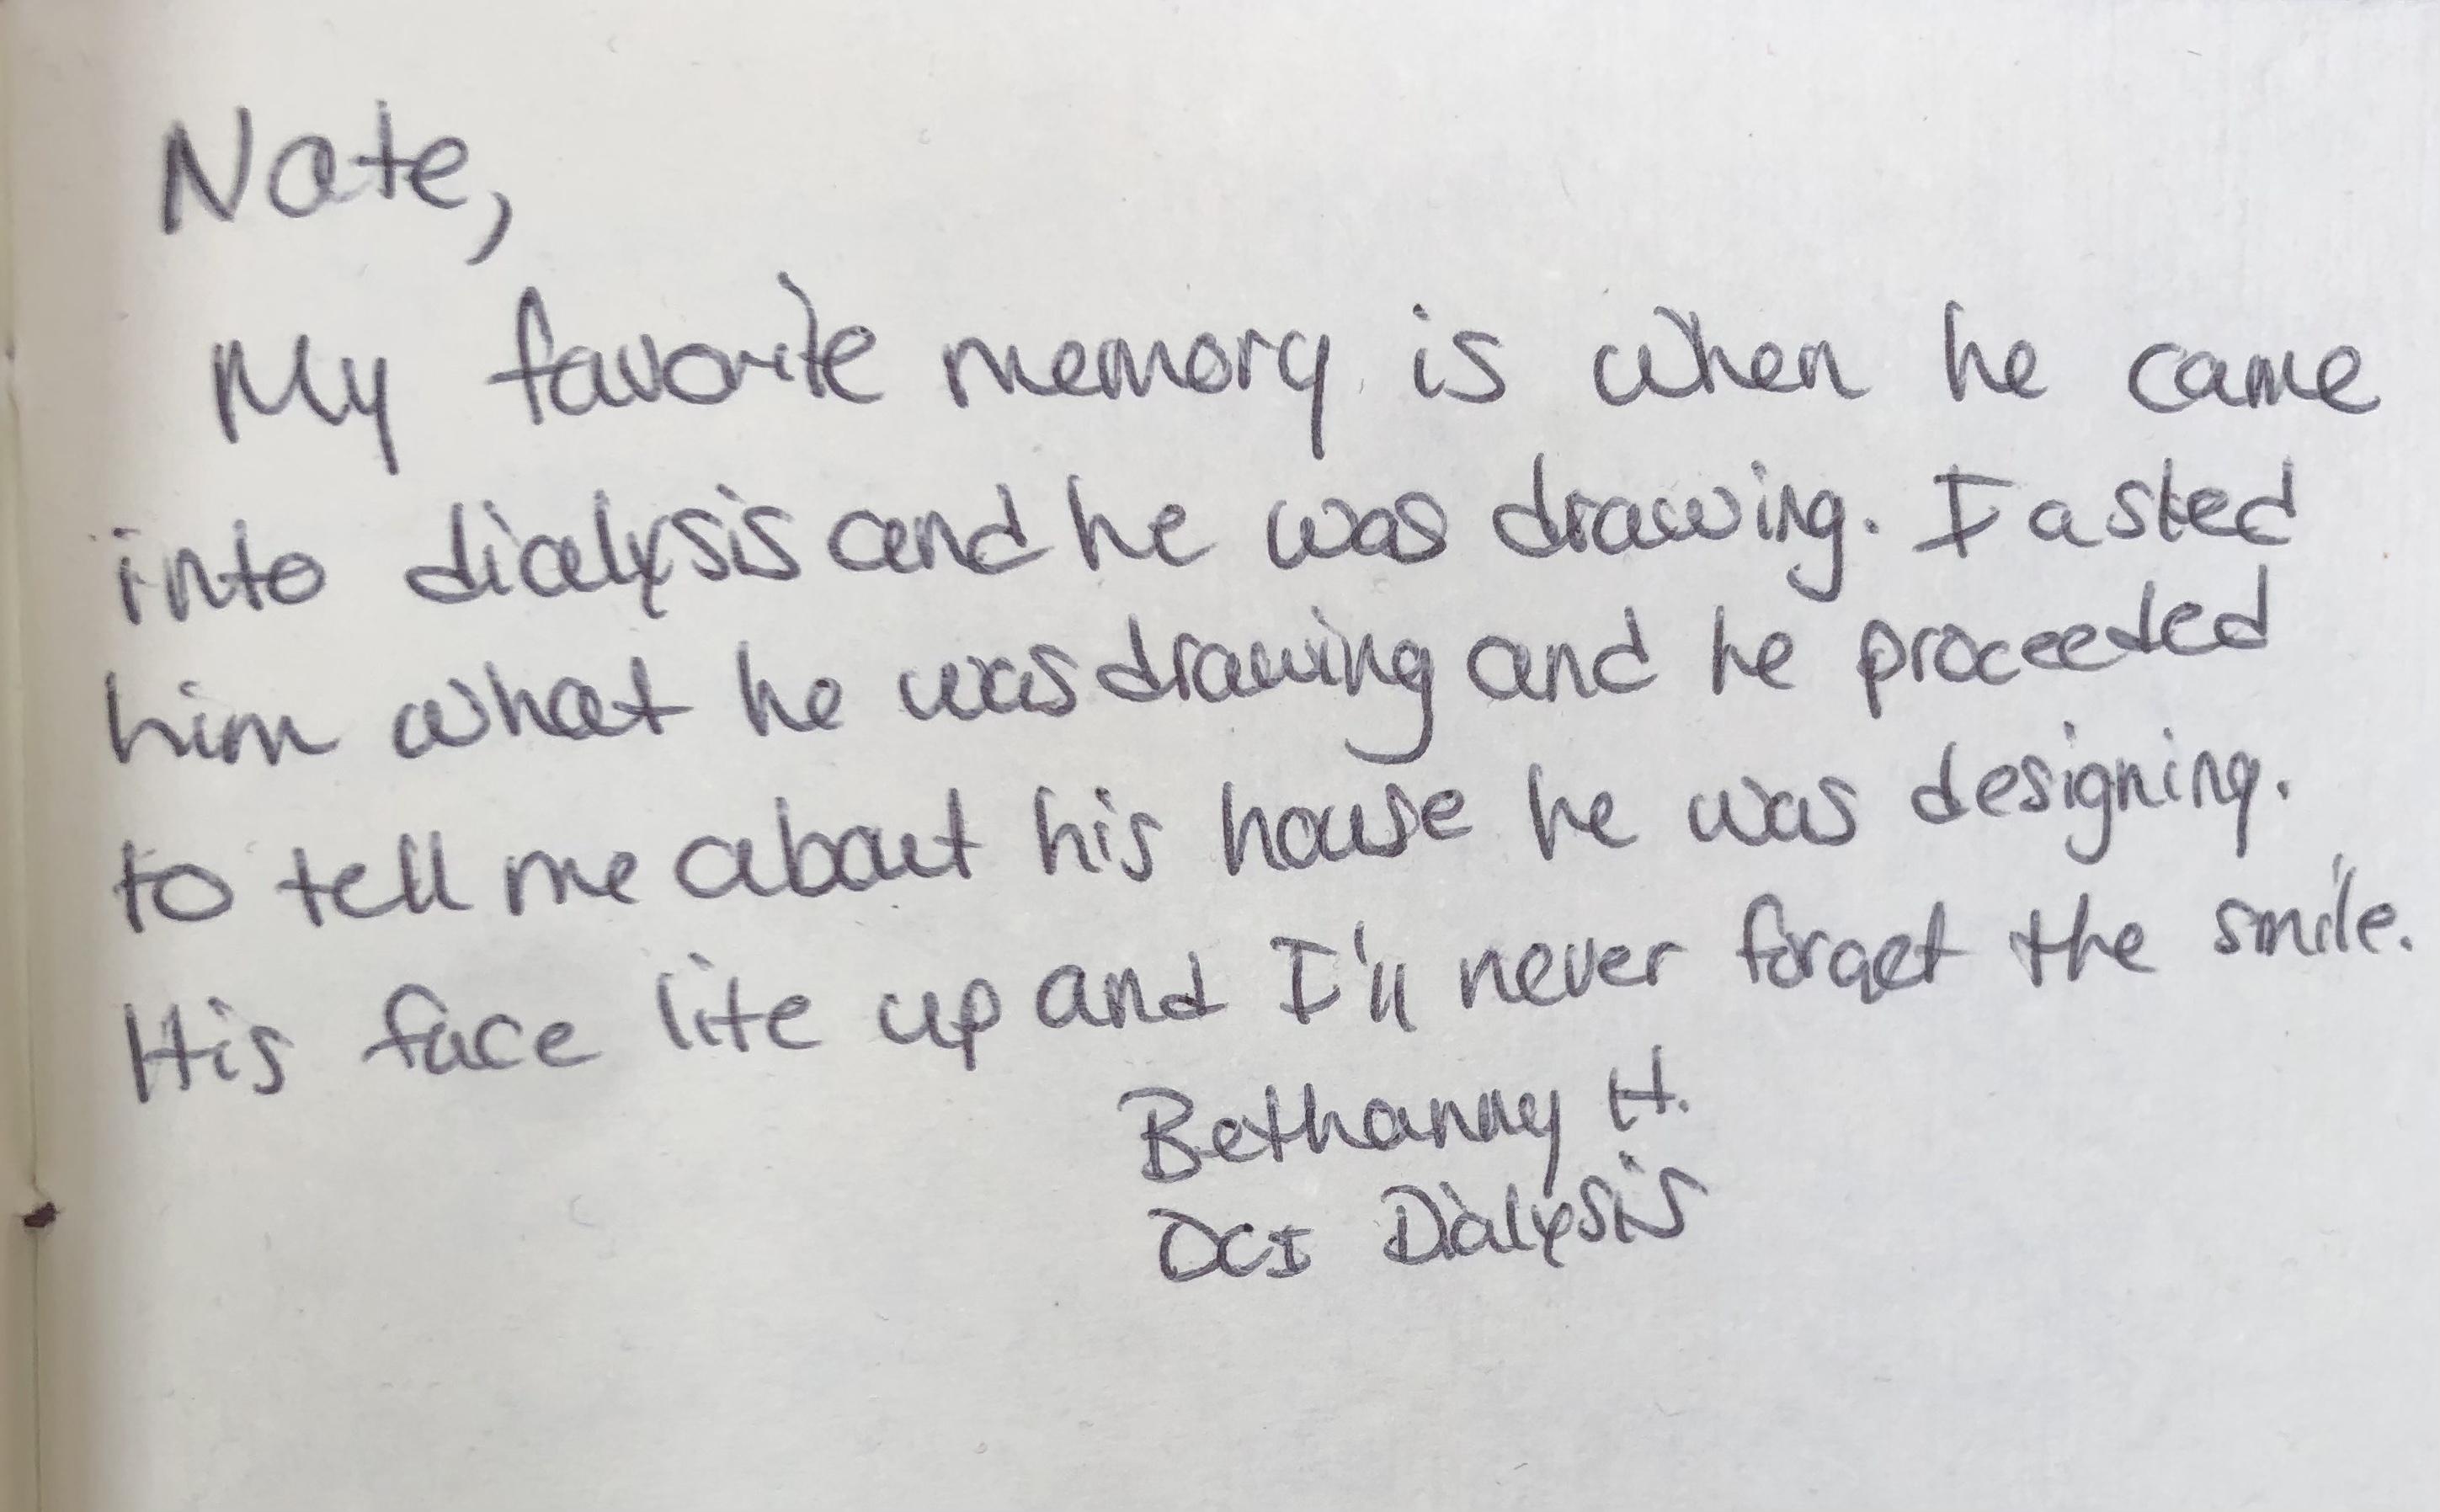 Nate,
My favorite memory is when he came
into dialysis and he was drawing. I asked
him what he was drawing and he proceeded
to tell me about his house he was designing.
His face lite up and I'll never forget the smile.
Bethanny H.
DCI Dialysis